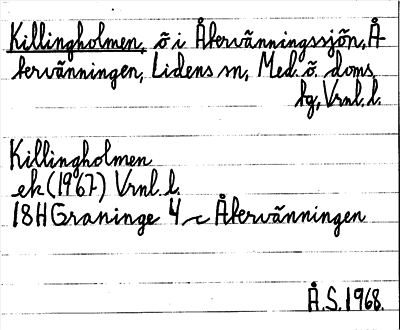 Killingholmen, ö i Återvänningssjön, Å-
tervänningen, Lidens sn, Med. ö. doms.
hg, Vrnl. l.
Killingholmen
ek (1967) Vrnl. l.
18H Graninge 4 c Återvänningen
Å.S. 1968.